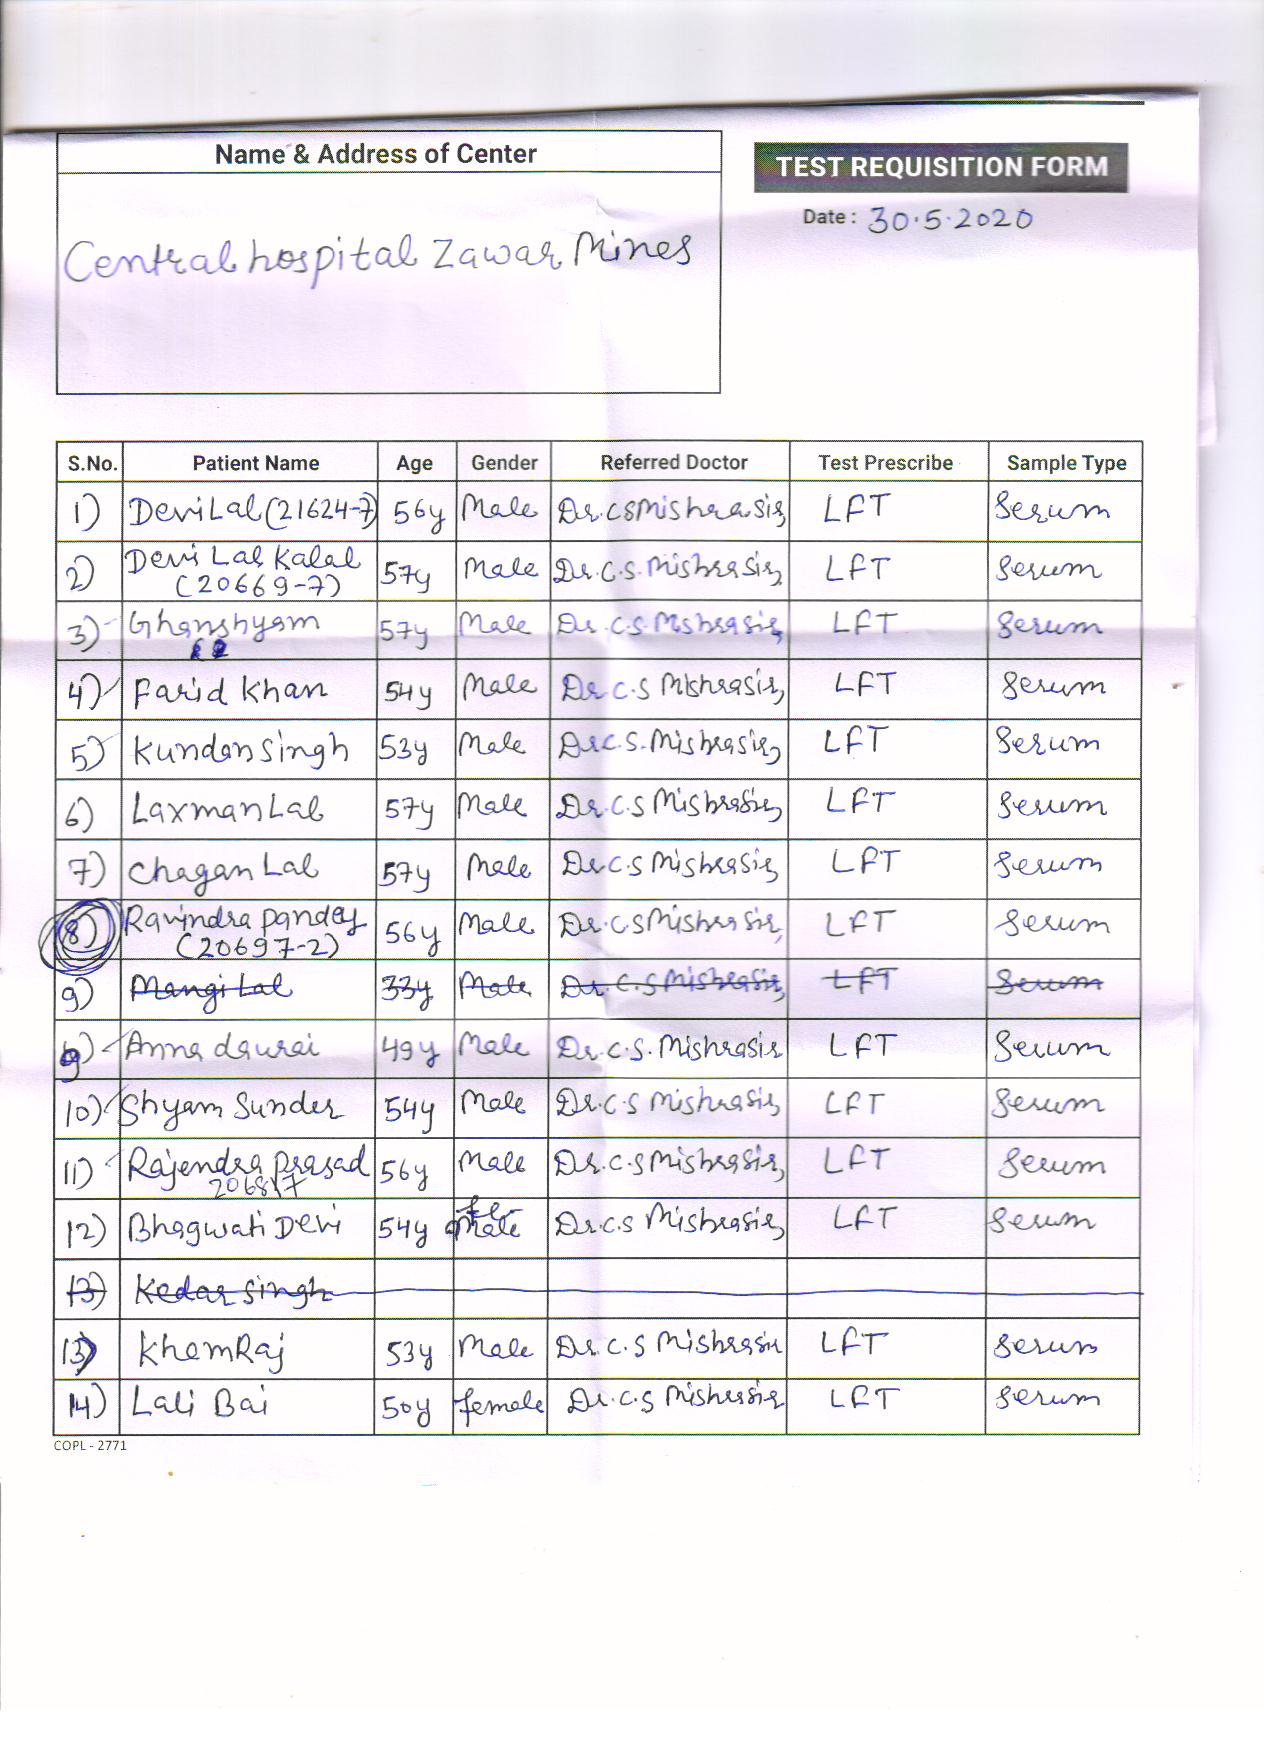 Name & Address of Center
TEST REQUISITION FORM
Date : 30.5.2020
Central hospital Zawar Mines
S.No. Patient Name Age Gender Referred Doctor Test Prescribe Sample Type
1) Devi Lal (21624-7) 56y Male Dr. CS Mishra Sir LFT Serum
2) Devi Lal Kalal (20669-7) 57y Male Dr. C.S. Mishra Sir LFT Serum
3) Ghanshyam 57y Male Dr. C.S Mshra Sir LFT Serum
4) Farid Khan 54y Male Dr C.S Mishra Sir LFT Serum
5) Kundan Singh 53y Male Dr C.S. Mishra Sir LFT Serum
6) Laxman Lal 57y Male Dr. C.S Mishra Sir LFT Serum
7) Chagan Lal 57y Male Dr C.S Mishra Sir LFT Serum
8) Ravindra Panday (20697-2) 56y Male Dr. C.S Mishra Sir LFT Serum
9) Mangi Lal 33y Male Dr. C.S Mishra Sir LFT Serum
9) Anna daurai 49y Male Dr. C.S. Mishra Sir LFT Serum
10) Shyam Sunder 54y Male Dr. C.S Mishra Sir LFT Serum
11) Rajendra Prasad 56y Male Dr. C.S Mishra Sir LFT Serum
12) Bhagwati Devi 54y Dr. C.S Mishra Sir LFT Serum
13) Kedar Singh
13) KhemRaj 53y Male Dr. C.S Mishra Sir LFT Serum
14) Lali Bai 50y female Dr. C.S Mishra Sir LFT Serum
COPL - 2771